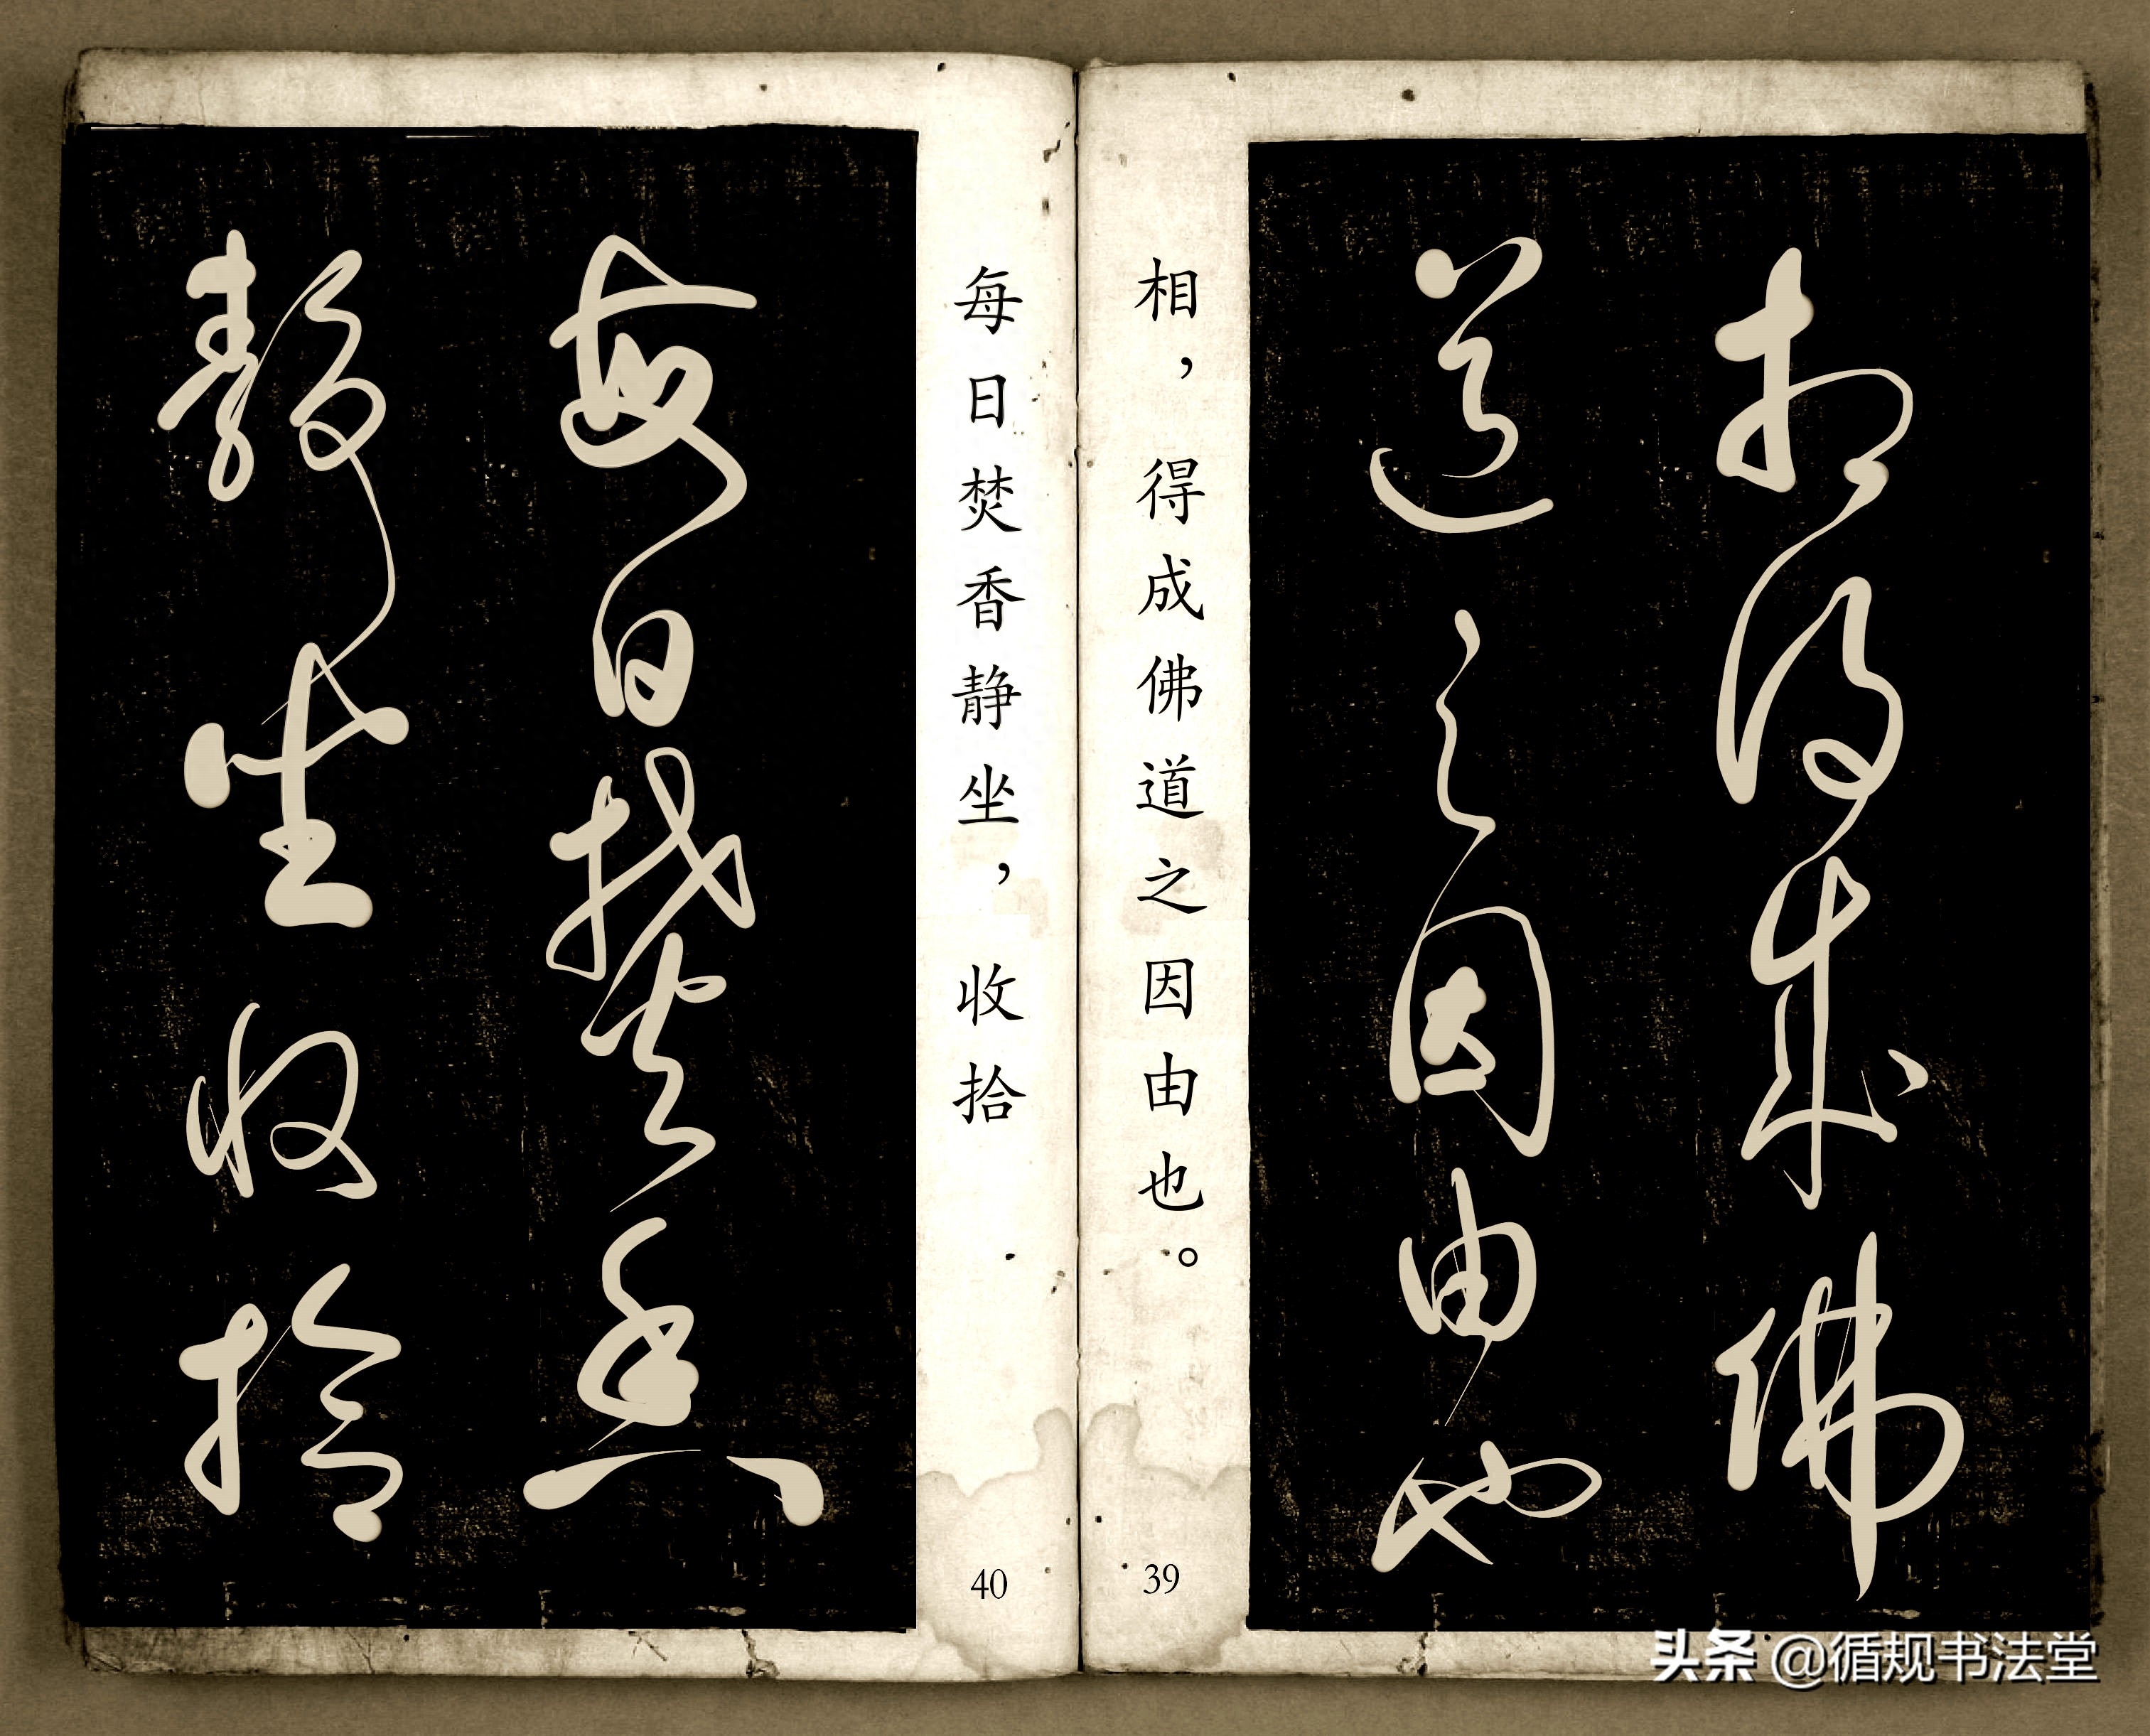 相得成佛
道之因由也
相，得成佛道之因由也。
39
每日焚香
静坐收拾
每日焚香静坐，收拾
40
头条 @循规书法堂